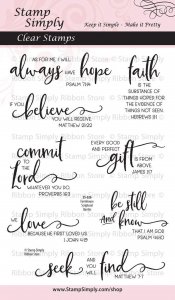 Stamp
Simply
Keep it Simple - Make it Pretty
Clear Stamps
AS FOR ME, I WILL
always HAVE hope
PSALM 71:14
faith
IS THE
SUBSTANCE OF
THINGS HOPED FOR
THE EVIDENCE OF
THINGS NOT SEEN
HEBREWS 11:1
believe
YOU WILL RECEIVE
MATTHEW 21:22
commit
TO the
Lord
WHATEVER YOU DO
PROVERBS 16:3
EVERY GOOD AND
PERFECT
gift
IS FROM
ABOVE
JAMES 1:17
WE
love
BECAUSE HE FIRST LOVED US
1 JOHN 4:19
Stamp Simply
Ribbon Store
be still
And know
THAT I AM GOD
PSALM 46:10
seek AND YOU WILL find
MATTHEW 7:7
www.StampSimply.com/shop